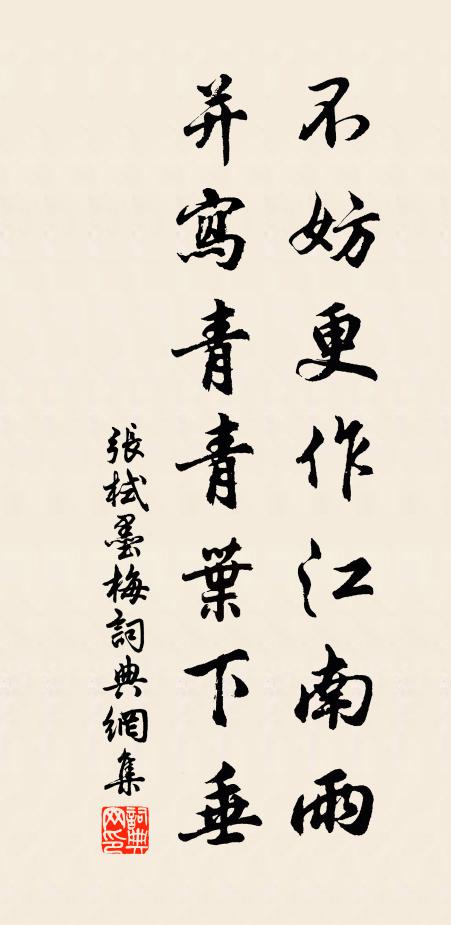 不妨更作江南雨
并寫青青葉下垂
張栻墨梅詞典網集
詞典
网印